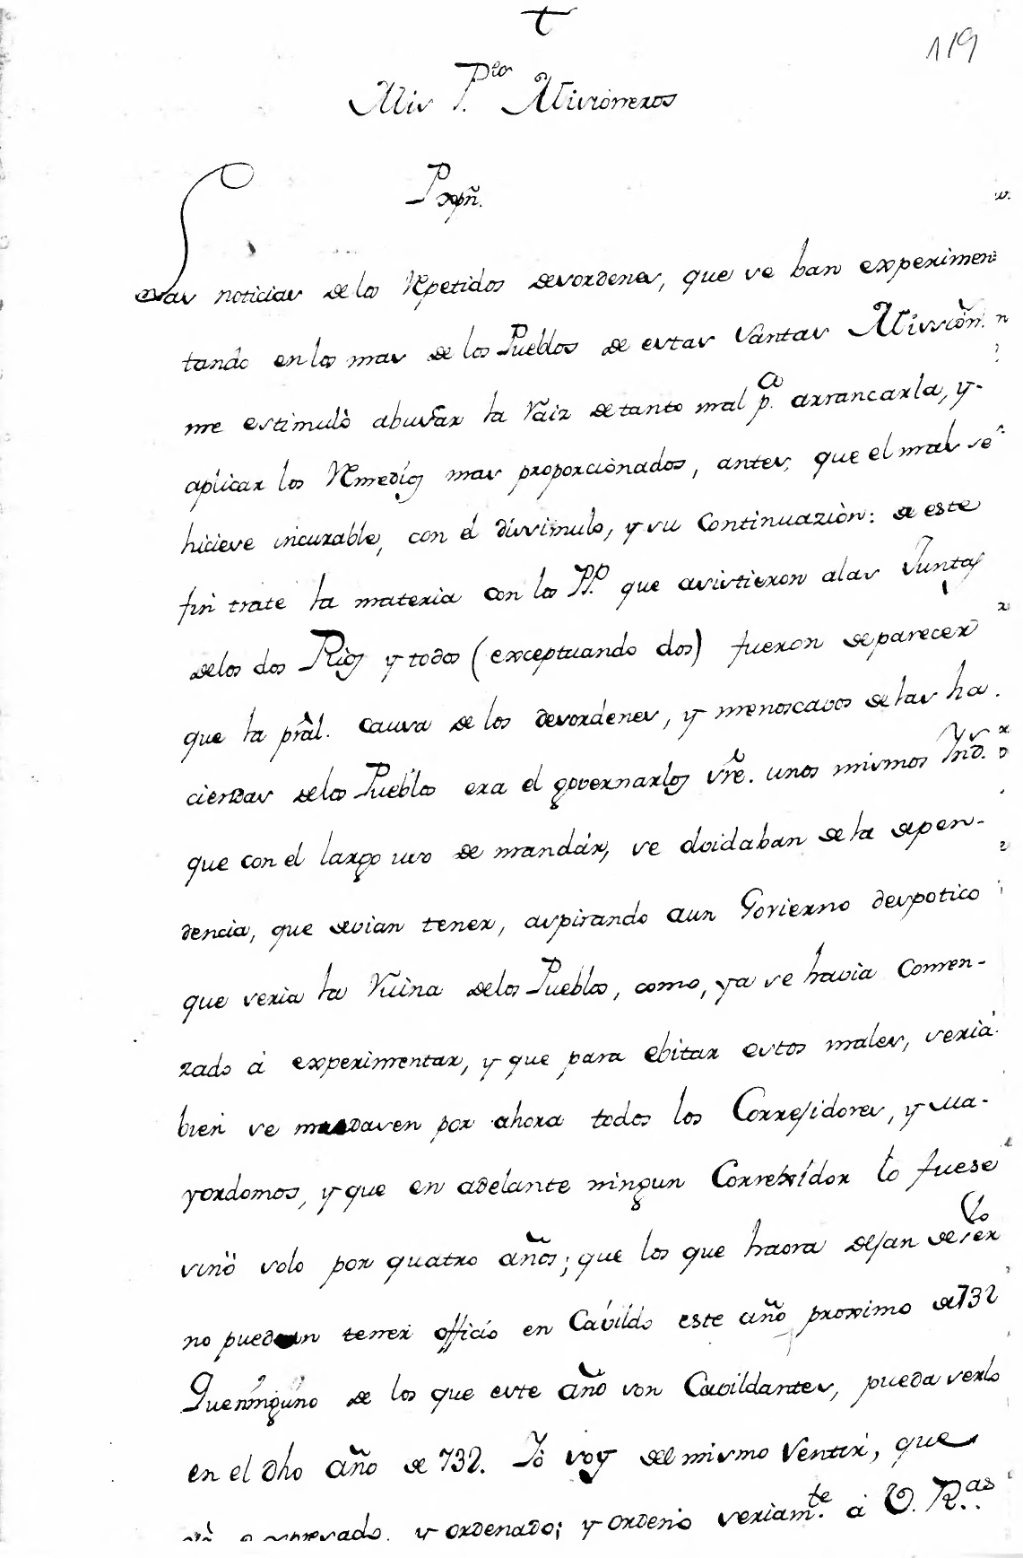 119
Mis P.^los Missioneros
Pax xpñ.
Las noticias de los Repetidos desordenes, que se han experimen
tando en los mas de los Pueblos de estas Santas Mission.
me estimulò abuscar la Raiz de tanto mal p.^a arrancarla, y
aplicar los Remedios mas proporcionados, antes, que el mal se
hiciese incurable, con el dissimulo, y su Continuaziòn: a este
fin trate la materia con los PP. que assistieron alas Juntas
delos dos Rios y todos (exceptuando dos) fueron deparecer
que la prâl. Causa de los desordenes, y menoscavos delas ha
ciendas delos Pueblos era el governarlos srẽ. unos mismos Ynd.^s
que con el largo uso de mandàr, se olvidaban de la depen-
dencia, que devian tener, aspirando aun Govierno despotico
que seria la Ruina delos Pueblos, como, ya se havia Comen-
zado à experimentar, y que para ebitar estos males, seria
bien se mudasen por ahora todos los Corregidores, y Ma-
yordomos, y que en adelante ningun Correxidor lo fuese
sinò solo por quatro años; que los que haora dejan deserlo
no puedan tener officio en Cavildo este año proximo de 732
Que ninguno de los que este año son Cavildantes, pueda serlo
en el dho año de 732. Yò soy del mismo Sentir, que
expresado, y ordenado; y ordeno seriam.^te à V. R.^as